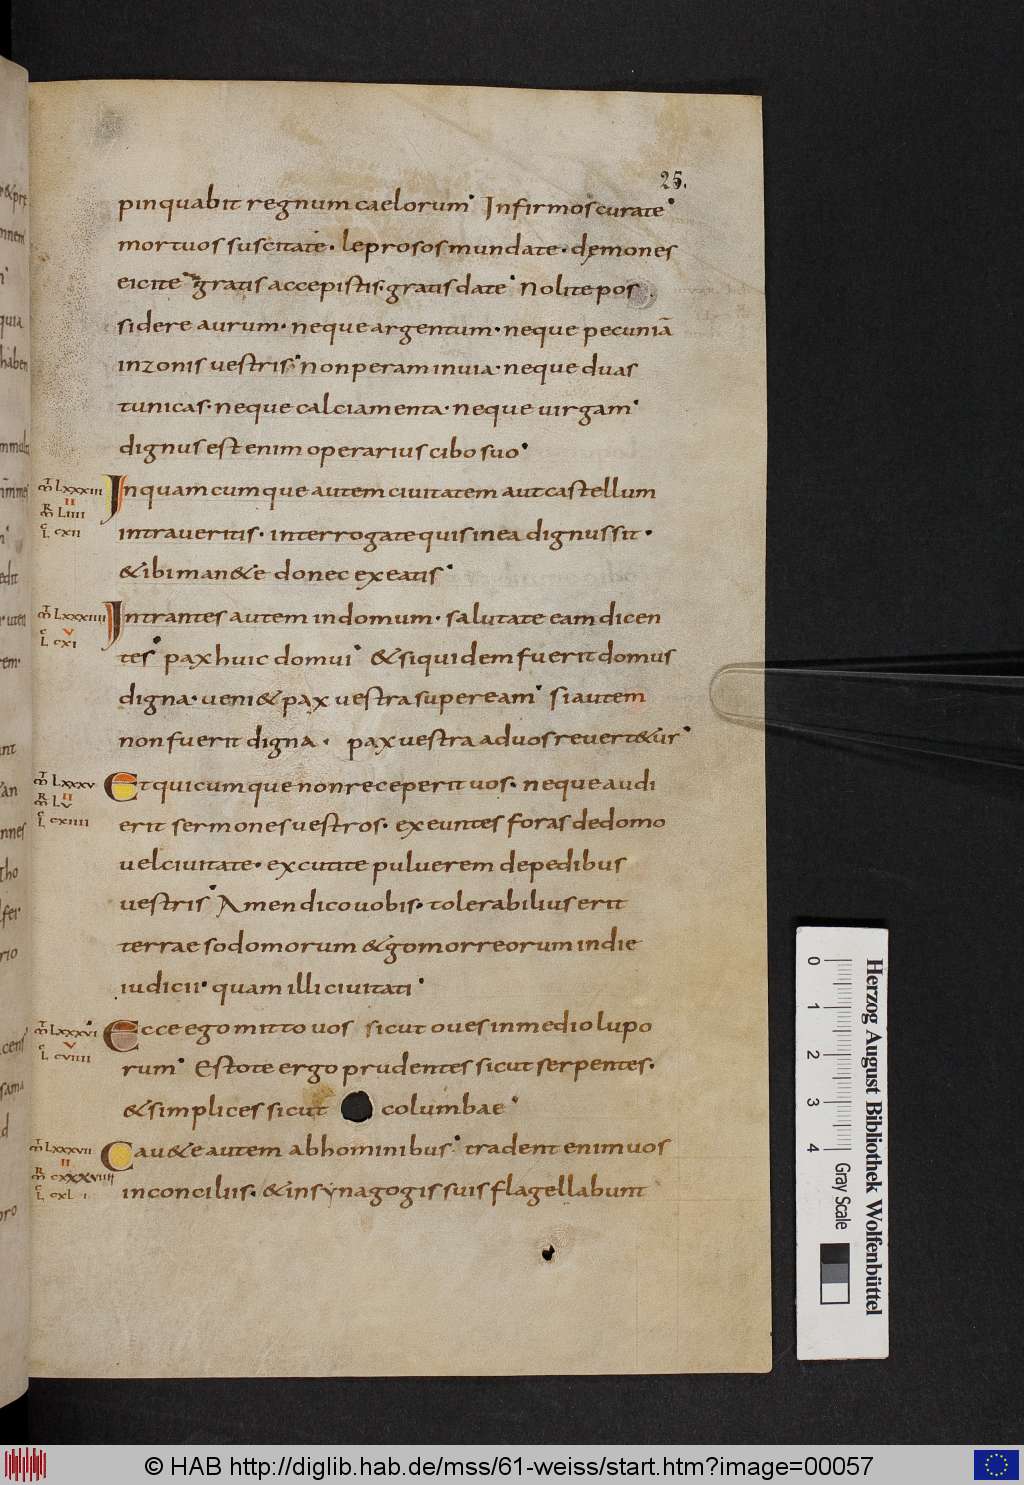 25.
pinquabit regnum caelorum· Infirmos curate·
mortuos suscitate· leprosos mundate· dęmones
eicite· gratis accepistis· gratis date· Nolite pos
sidere aurum· neque argentum· neque pecuniā
in zonis vestris· non peram in uia· neque duas
tunicas· neque calciamenta· neque uirgam·
dignus est enim operarius cibo suo·
M̄T LXXXIII
II
M̄R LIIII
L̄C CXII
In quamcumque autem ciuitatem aut castellum
intraueritis· interrogate quis in ea dignus sit·
& ibi man&e donec exeatis·
M̄T LXXXIIII
V
L̄C CXI
Intrantes autem in domum· salutate eam dicen
tes· pax huic domui· & siquidem fuerit domus
digna· ueni& pax uestra super eam· si autem
non fuerit digna· pax uestra ad uos reuert&ur·
M̄T LXXXV
II
M̄R LV
L̄C CXIIII
Et quicumque non receperit uos· neque audi
erit sermones uestros· exeuntes foras de domo
uel ciuitate· excutite puluerem de pedibus
uestris· Amen dico uobis· tolerabilius erit
terrae sodomorum & gomorreorum in die
iudicii· quam illi ciuitati·
M̄T LXXXVI
V
L̄C CVIIII
Ecce ego mitto uos sicut oues in medio lupo
rum· Estote ergo prudentes sicut serpentes·
& simplices sicut columbae·
M̄T LXXXVII
II
M̄R CXXXVIIII
L̄C CXL I
Cau&e autem ab hominibus· tradent enim uos
in conciliis· & in synagogis suis flagellabunt
0 1 2 3 4
Gray Scale
Herzog August Bibliothek Wolfenbüttel
© HAB http://diglib.hab.de/mss/61-weiss/start.htm?image=00057